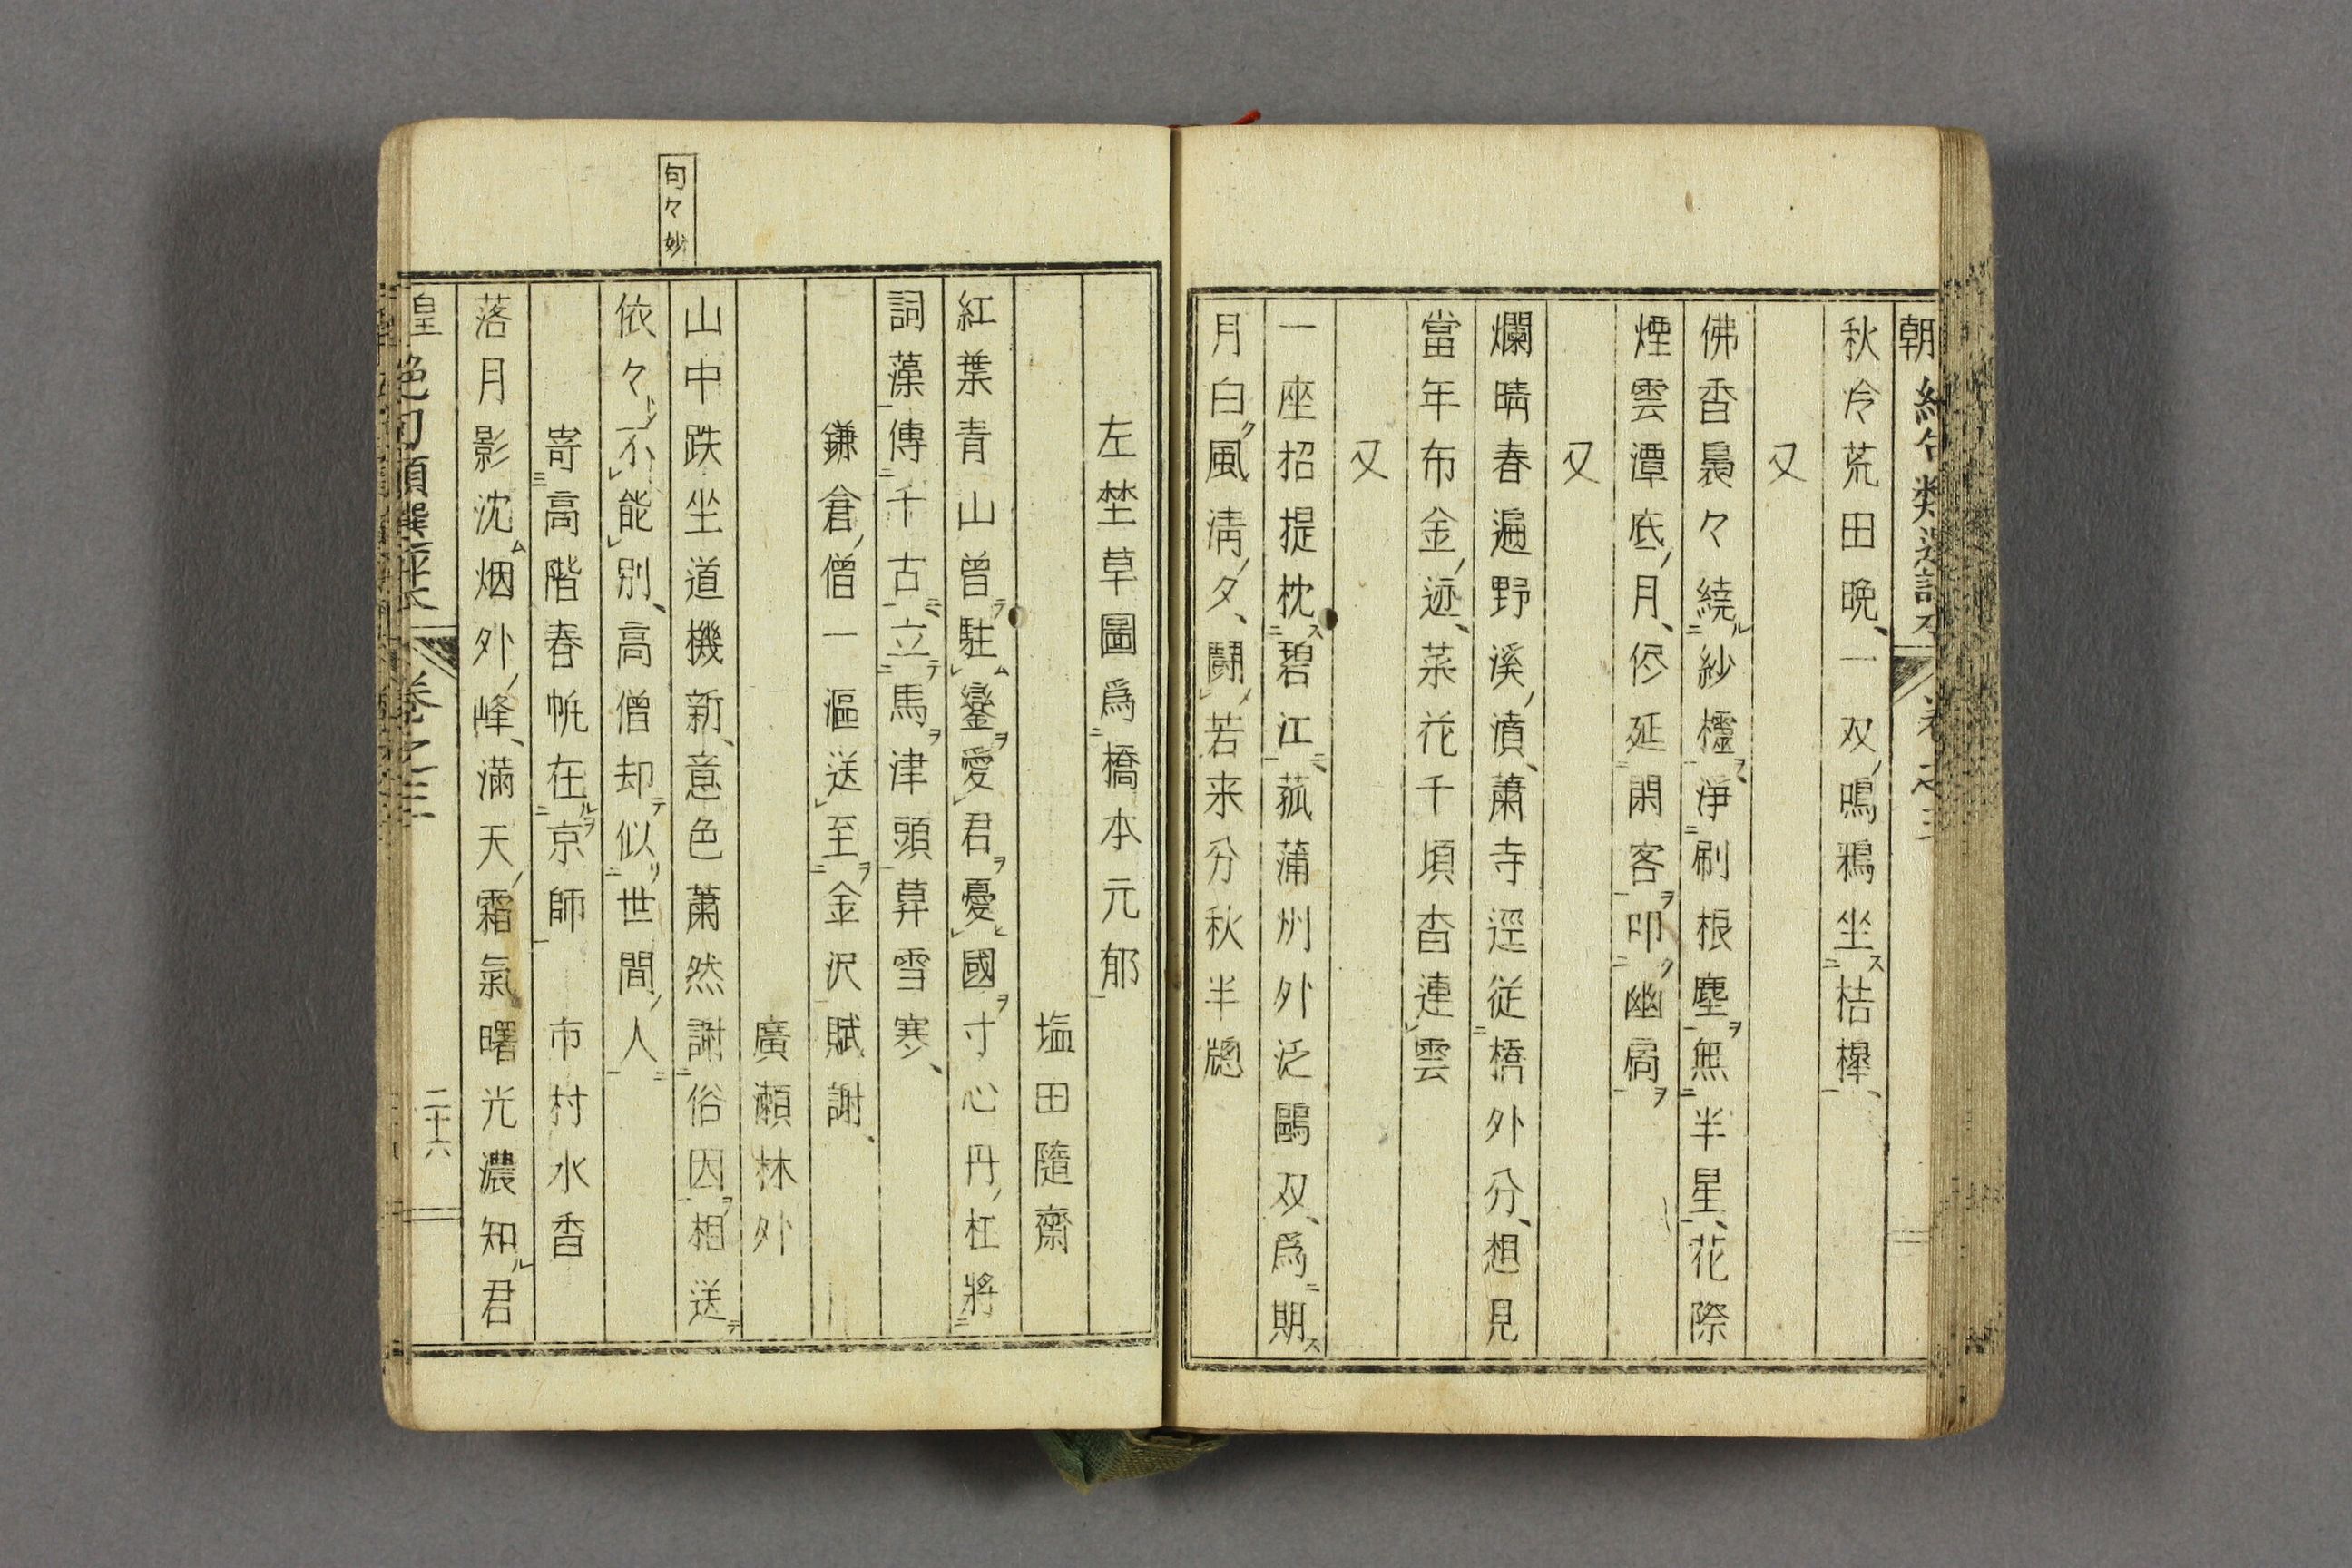 秋冷荒田晩一双鳴鴉坐桔槹
又
佛香裊々繞紗櫺淨刷根塵無半星花際
煙雲潭底月修延閑客叩幽扃
又
爛晴春遍野溪濆蕭寺逕従橋外分想見
當年布金迹菜花千頃杳連雲
又
一座招提枕碧江菰蒲洲外泛鷗双爲期
月白風清夕鬪若来分秋半牕
左埜草圖爲橋本元郁
塩田隨齋
紅葉青山曾駐鑾愛君憂國寸心丹杜將
詞藻傳千古立馬津頭算雪寒
鎌倉僧一漚送至金沢賦謝
廣瀬林外
山中趺坐道機新意色蕭然謝俗因相送
句々妙
依々不能別高僧却似世間人
寄高階春帆在京師
市村水香
落月影沈烟外峰滿天霜氣曙光濃知君
皇
絶句類選評本
卷之三
二十六